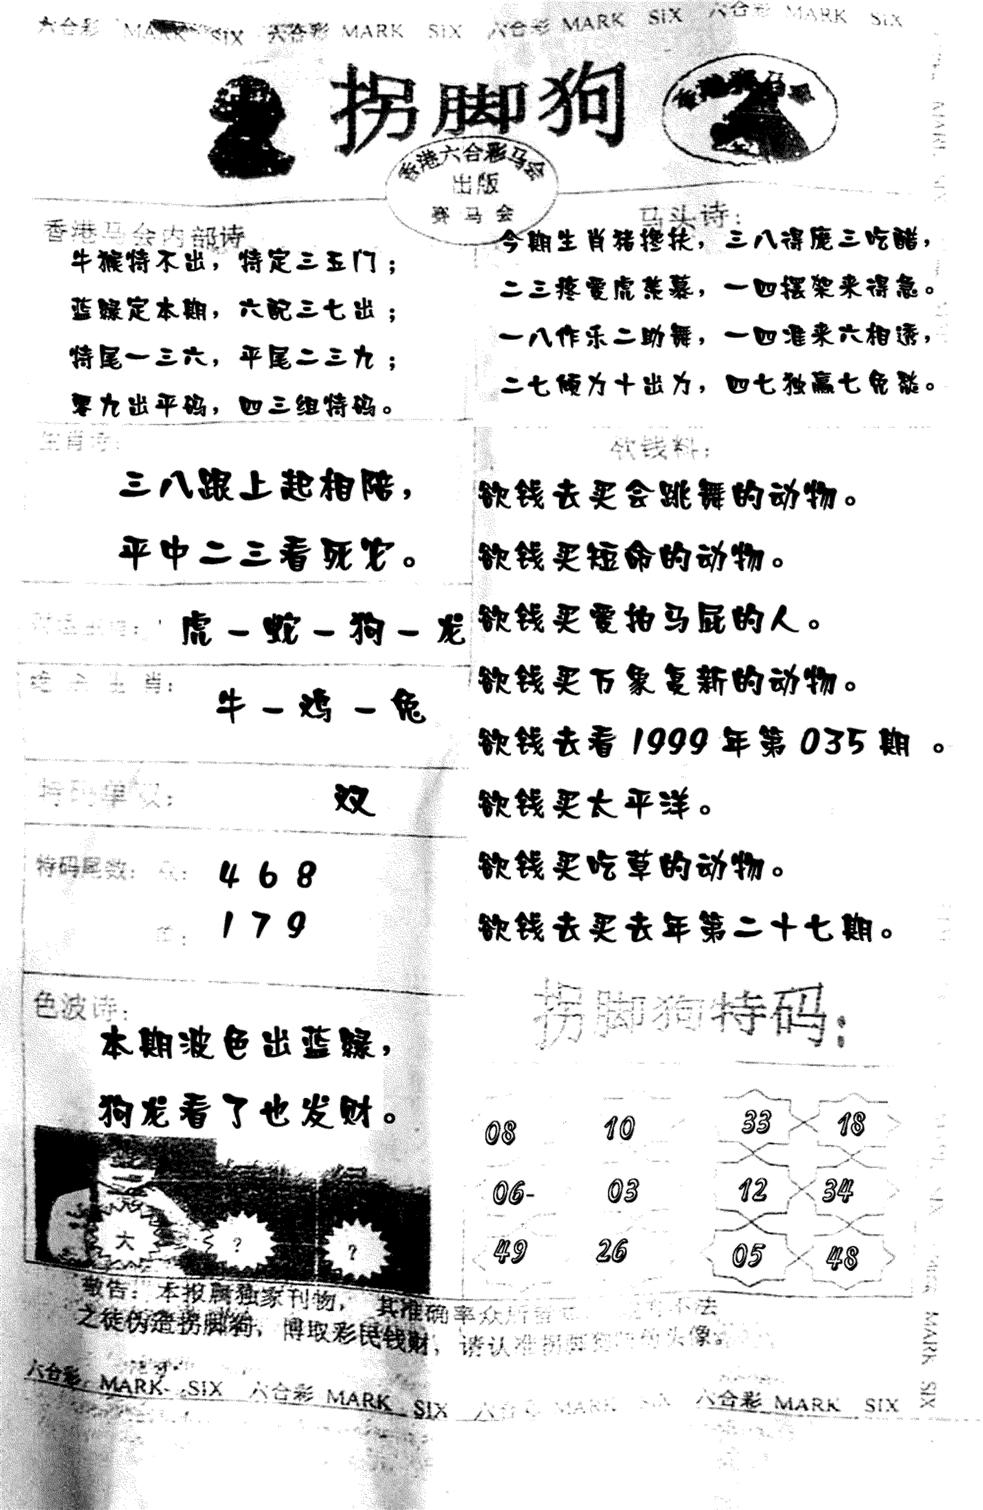 六合彩 MARK SIX 六合彩 MARK SIX 六合彩 MARK SIX 六合彩 MARK SIX
拐脚狗
香港赛马会
香港六合彩马会
出版
赛马会
香港马会内部诗
牛猴特不出，特定三五门；
蓝绿定本期，六配三七出；
特尾一三六，平尾二三九；
零九出平码，四三组特码。
马头诗：
今期生肖猪搀扶，三八得庞三吃醋，
二三疼爱虎羡慕，一四摆架来得急。
一八作乐二助舞，一四准来六相诱，
二七倾力十出力，四七独赢七免愁。
生肖诗：
三八跟上起相陪，
平中二三看死它。
虎－蛇－狗－龙
绝杀生肖：
牛－鸡－兔
特码单双：
双
特码尾数：双：
4 6 8
单：
1 7 9
色波诗：
本期波色出蓝绿，
狗龙看了也发财。
大
?
?
欲钱料：
欲钱去买会跳舞的动物。
欲钱买短命的动物。
欲钱买爱拍马屁的人。
欲钱买万象复新的动物。
欲钱去看1999年第035期。
欲钱买太平洋。
欲钱买吃草的动物。
欲钱去买去年第二十七期。
拐脚狗特码：
08 10 33 18
06- 03 12 34
49 26 05 48
敬告：本报属独家刊物，其准确率众所
不法
之徒伪造拐脚狗，博取彩民钱财，请认准拐脚狗
头像。
六合彩 MARK SIX 六合彩 MARK SIX 六合 MARK SIX 六合彩 MARK SIX
MARK SIX
MARK SIX